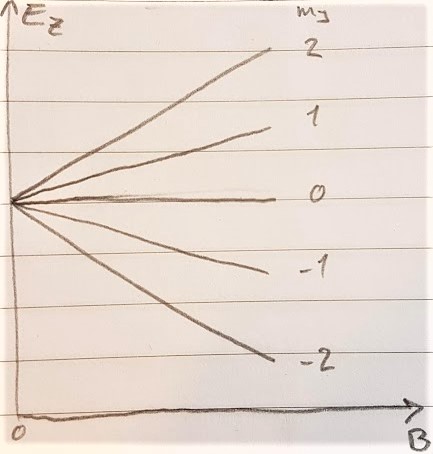 E_Z m_J
2
1
0
-1
-2
0 B